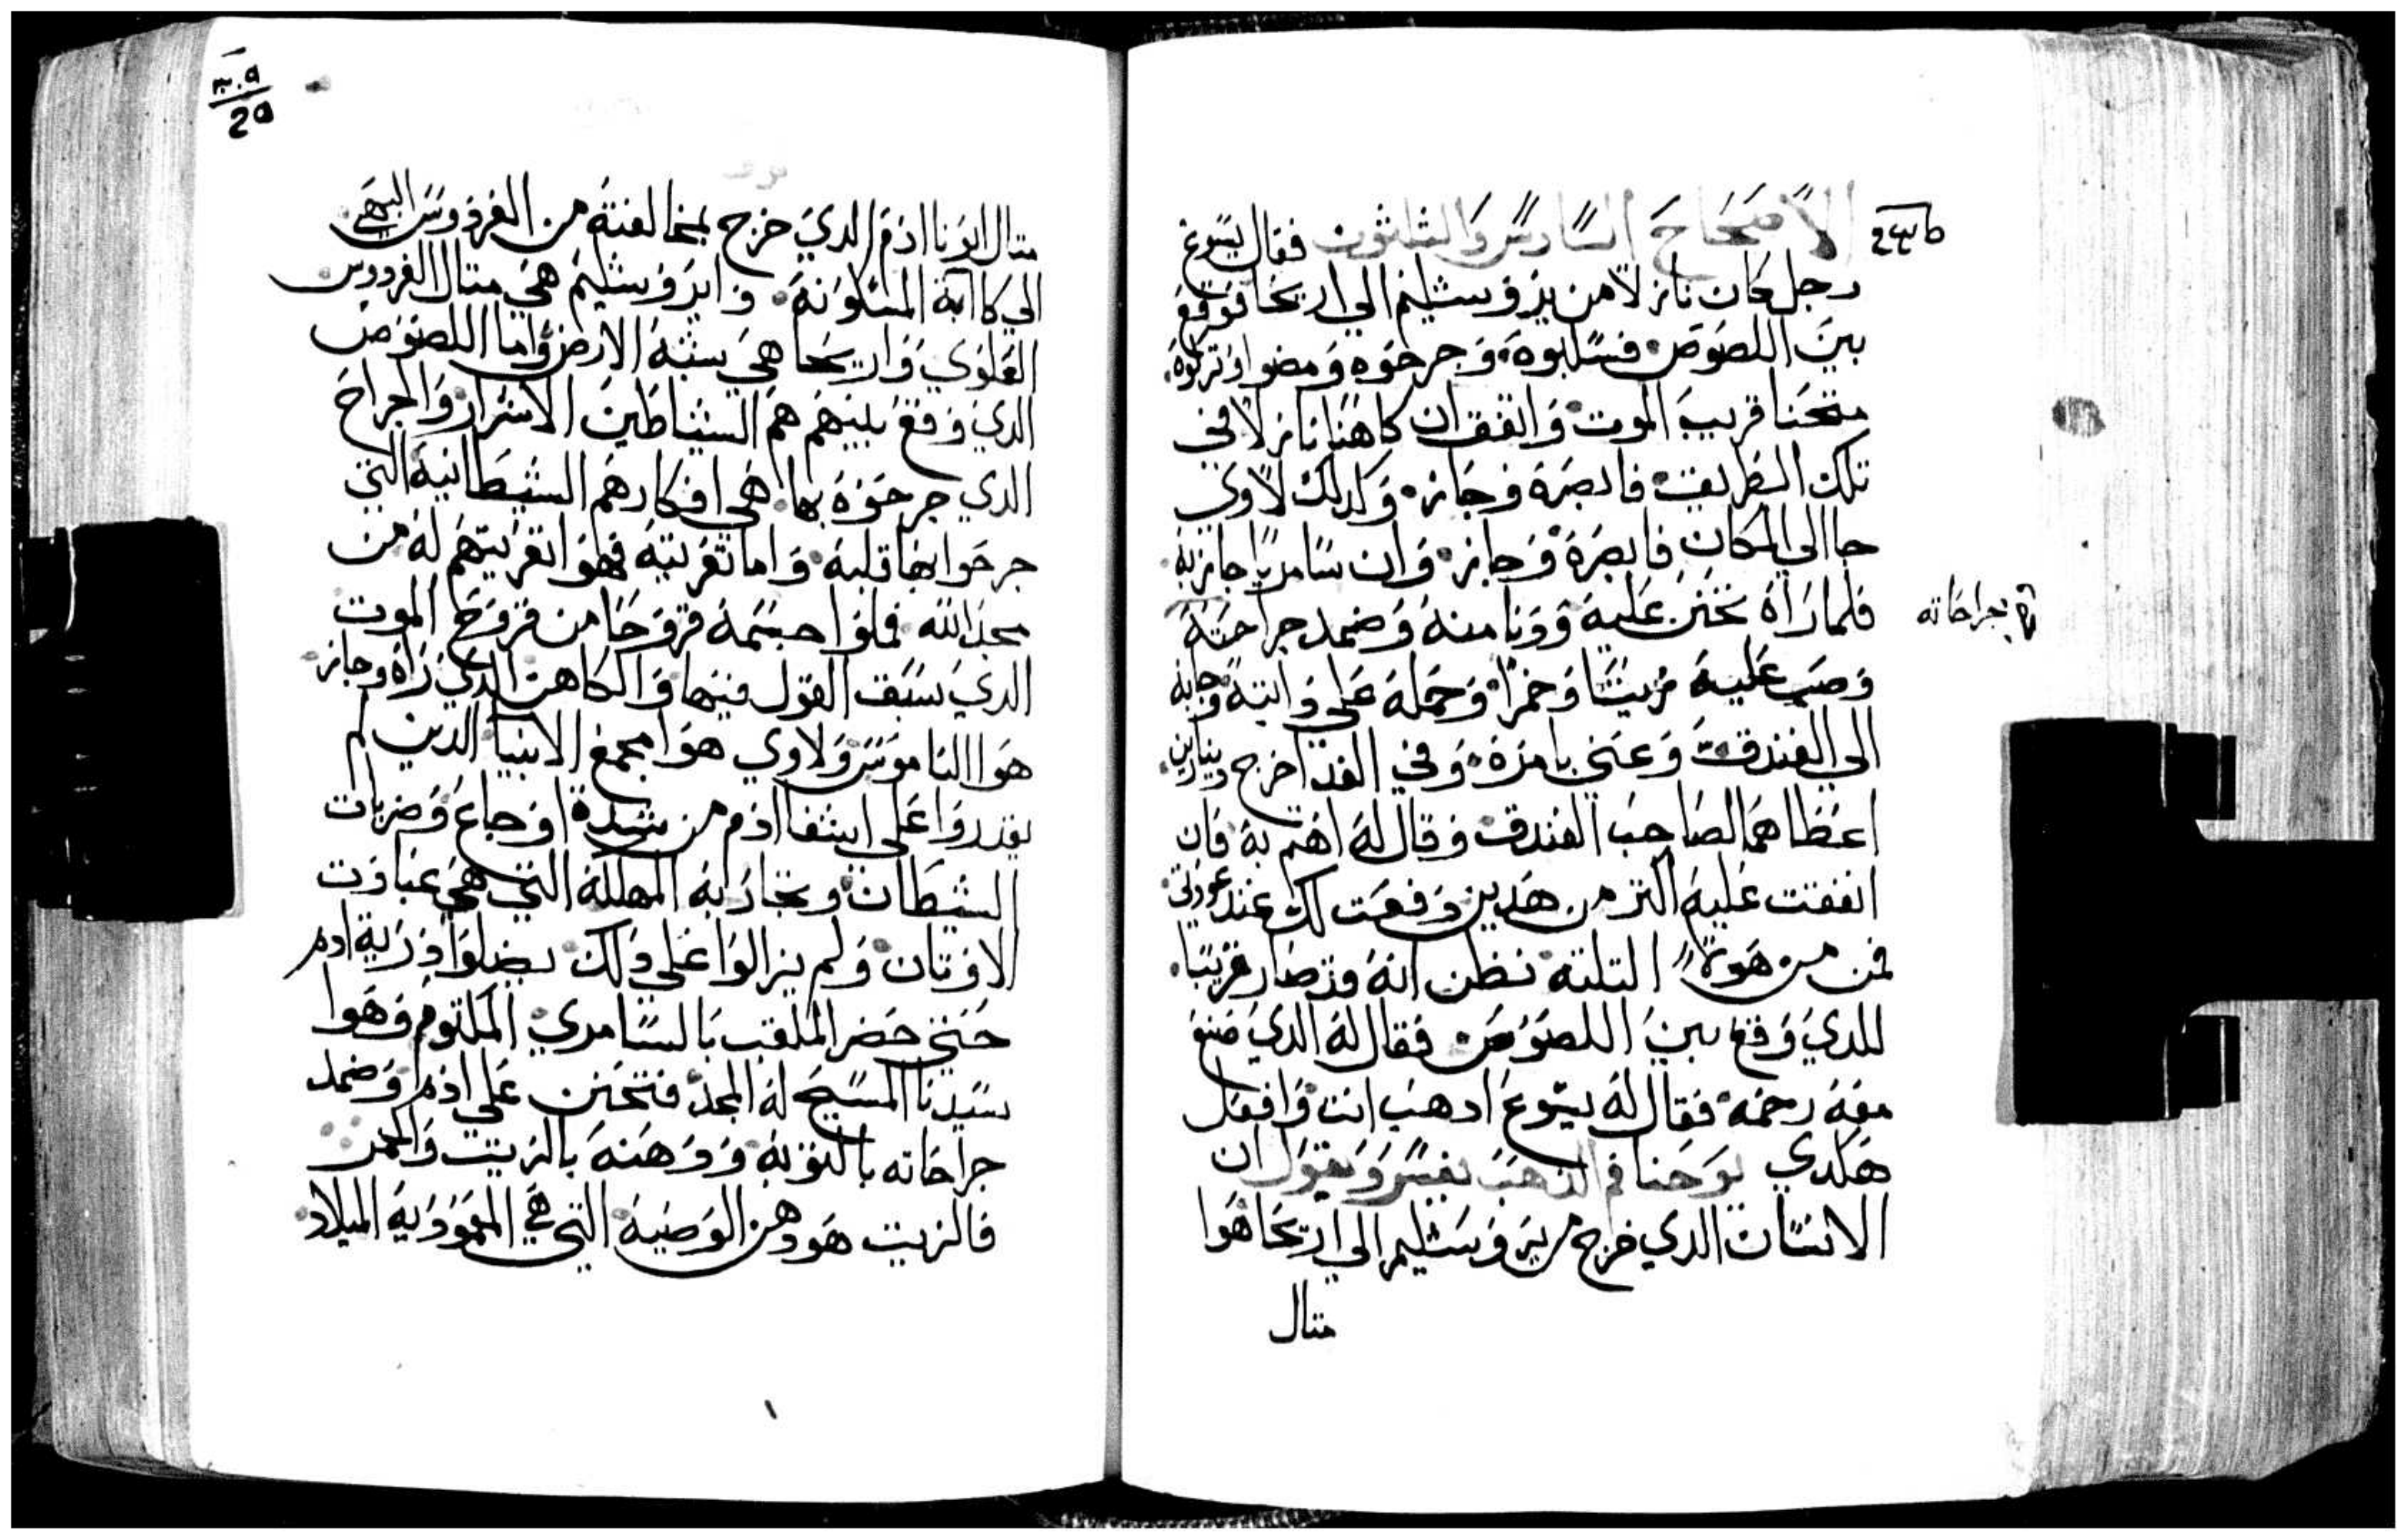 الاصحاح السادس والثلثون فقال يسوع
رجل كان نازلا من يروشليم الي اريحا فوقع
بين اللصوص فسلبوه وجرحوه ومضوا وتركوه
مثخنا قريب الموت واتفق ان كاهنا نازلا في
تلك الطريق فابصره وجاز وكدلك لاوي
جا الي المكان فابصره وجاز وان سامريا جاز به
فلما راه تحنن عليه ودنا منه وضمد جراحته
بجراحاته
وصب عليه زيتا وخمرا وحمله علي دابته وجا به
الي الفندق وعني بامره وفي الغد اخرج دينارين
اعطاهما لصاحب الفندق وقال له اهتم به فان
انفقت عليه اكتر من هدين دفعت لك عند عودتي
فمن من هولا التلته تظن انه قد صار قريبا
للدي وقع بين اللصوص فقال له الدي صنع
معه رحمه فقال له يسوع ادهب انت وافعل
هكدي يوحنا فم الدهب يفسر ويقول ان
الانسان الدي خرج من يروشليم الي اريحا هوا
متال
٣٠٩
متال ابونا ادم الدي خرج بمخالفته من الفردوس البهي
الي كابة المسكونة وايروشليم هي متال الفردوس
العلوي واريحا هي سبه الارض واما اللصوص
الدي وقع بينهم هم الشياطين الاشرار والجراح
الدي جرحوه بها هي افكارهم الشيطانية التي
جرحوا بها قلبه واما تعريته فهوا تعريتهم له من
مجد الله
الدي سبق القول فيها والكاهن الدي راه وجاز
هوا الناموس ولاوي هوا مجمع الانبيا الدين لم
يقدروا علي اشفا ادم من شدة اوجاع وضربات
الشيطان وتجاربه المهلكة التي هي عبادت
الاوتان ولم يزالوا علي دلك يضلوا درية ادم
حتي حضر الملقب بالسامري المكتوم وهوا
سيدنا المسيح له المجد فتحنن علي ادم وضمد
جراحاته بالتوبة ودهنه بالزيت والخمر
فالزيت هو دهن الوصية التي هي المعمودية الميلاد